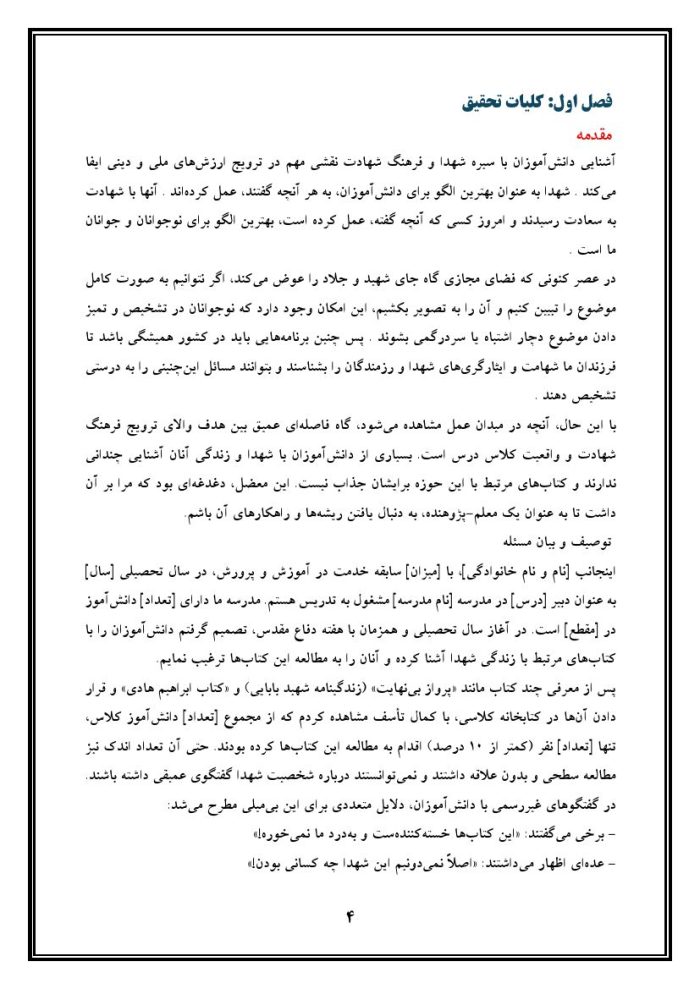 فصل اول: کلیات تحقیق
مقدمه
آشنایی دانش‌آموزان با سیره شهدا و فرهنگ شهادت نقشی مهم در ترویج ارزش‌های ملی و دینی ایفا
می‌کند . شهدا به عنوان بهترین الگو برای دانش‌آموزان، به هر آنچه گفتند، عمل کرده‌اند . آنها با شهادت
به سعادت رسیدند و امروز کسی که آنچه گفته، عمل کرده است، بهترین الگو برای نوجوانان و جوانان
ما است .
در عصر کنونی که فضای مجازی گاه جای شهید و جلاد را عوض می‌کند، اگر نتوانیم به صورت کامل
موضوع را تبیین کنیم و آن را به تصویر بکشیم، این امکان وجود دارد که نوجوانان در تشخیص و تمیز
دادن موضوع دچار اشتباه یا سردرگمی بشوند . پس چنین برنامه‌هایی باید در کشور همیشگی باشد تا
فرزندان ما شهامت و ایثارگری‌های شهدا و رزمندگان را بشناسند و بتوانند مسائل این‌چنینی را به درستی
تشخیص دهند .
با این حال، آنچه در میدان عمل مشاهده می‌شود، گاه فاصله‌ای عمیق بین هدف والای ترویج فرهنگ
شهادت و واقعیت کلاس درس است. بسیاری از دانش‌آموزان با شهدا و زندگی آنان آشنایی چندانی
ندارند و کتاب‌های مرتبط با این حوزه برایشان جذاب نیست. این معضل، دغدغه‌ای بود که مرا بر آن
داشت تا به عنوان یک معلم-پژوهنده، به دنبال یافتن ریشه‌ها و راهکارهای آن باشم.
توصیف و بیان مسئله
اینجانب [نام و نام خانوادگی]، با [میزان] سابقه خدمت در آموزش و پرورش، در سال تحصیلی [سال]
به عنوان دبیر [درس] در مدرسه [نام مدرسه] مشغول به تدریس هستم. مدرسه ما دارای [تعداد] دانش‌آموز
در [مقطع] است. در آغاز سال تحصیلی و همزمان با هفته دفاع مقدس، تصمیم گرفتم دانش‌آموزان را با
کتاب‌های مرتبط با زندگی شهدا آشنا کرده و آنان را به مطالعه این کتاب‌ها ترغیب نمایم.
پس از معرفی چند کتاب مانند «پرواز بی‌نهایت» (زندگینامه شهید بابایی) و «کتاب ابراهیم هادی» و قرار
دادن آن‌ها در کتابخانه کلاسی، با کمال تأسف مشاهده کردم که از مجموع [تعداد] دانش‌آموز کلاس،
تنها [تعداد] نفر (کمتر از ۱۰ درصد) اقدام به مطالعه این کتاب‌ها کرده بودند. حتی آن تعداد اندک نیز
مطالعه سطحی و بدون علاقه داشتند و نمی‌توانستند درباره شخصیت شهدا گفتگوی عمیقی داشته باشند.
در گفتگوهای غیررسمی با دانش‌آموزان، دلایل متعددی برای این بی‌میلی مطرح می‌شد:
- برخی می‌گفتند: «این کتاب‌ها خسته‌کننده‌ست و به‌درد ما نمی‌خوره!»
- عده‌ای اظهار می‌داشتند: «اصلاً نمی‌دونیم این شهدا چه کسانی بودن!»
۴